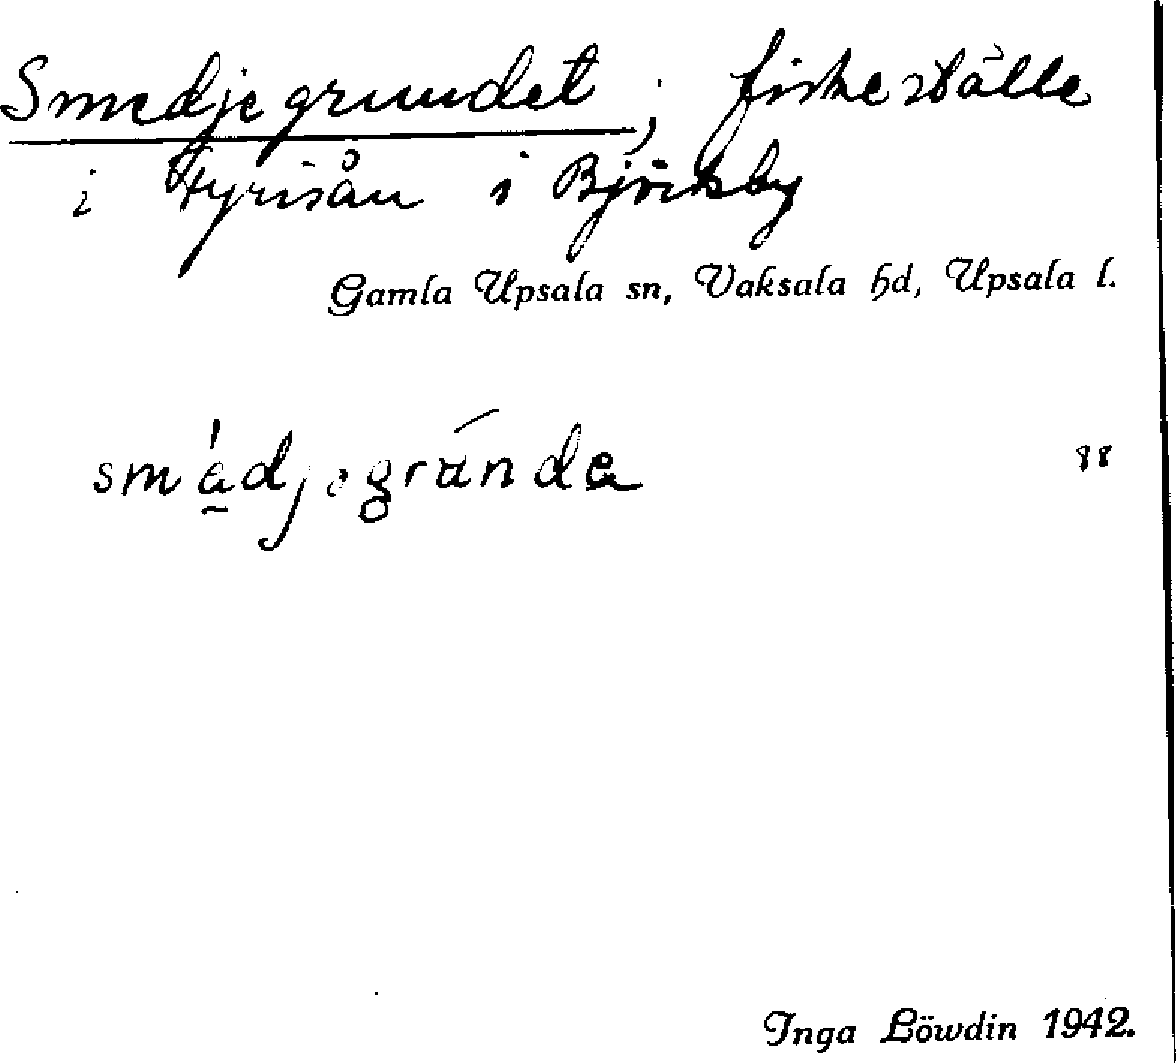 Smedjegrundet; fiskeställe
i Fyrisån i Björkby
Gamla Upsala sn, Vaksala hd, Upsala l.
88
Inga Löwdin 1942.